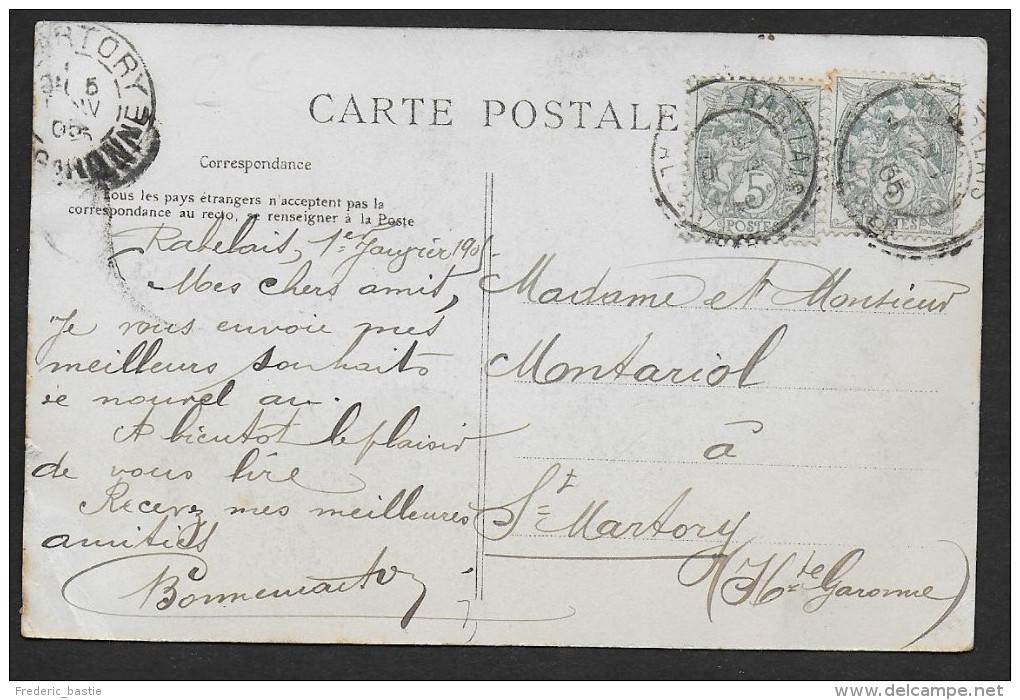 CARTE POSTALE
Correspondance
Tous les pays étrangers n'acceptent pas la
correspondance au recto, se renseigner à la Poste
Rabelais, 1er Janvier 1905.
Mes chers amis,
Je vous envoie mes
meilleurs souhaits
de nouvel an.
A bientôt le plaisir
de vous lire
Recevez mes meilleures
amitiés
Madame et Monsieur
Montariol
à
St Martory
(Hte Garonne)
MARTORY
5
05
GARONNE
RABELAIS
ALGER
05
5
POSTES
RABELAIS
05
5
ALGER
POSTES
Frederic_bastie
delcampe.net